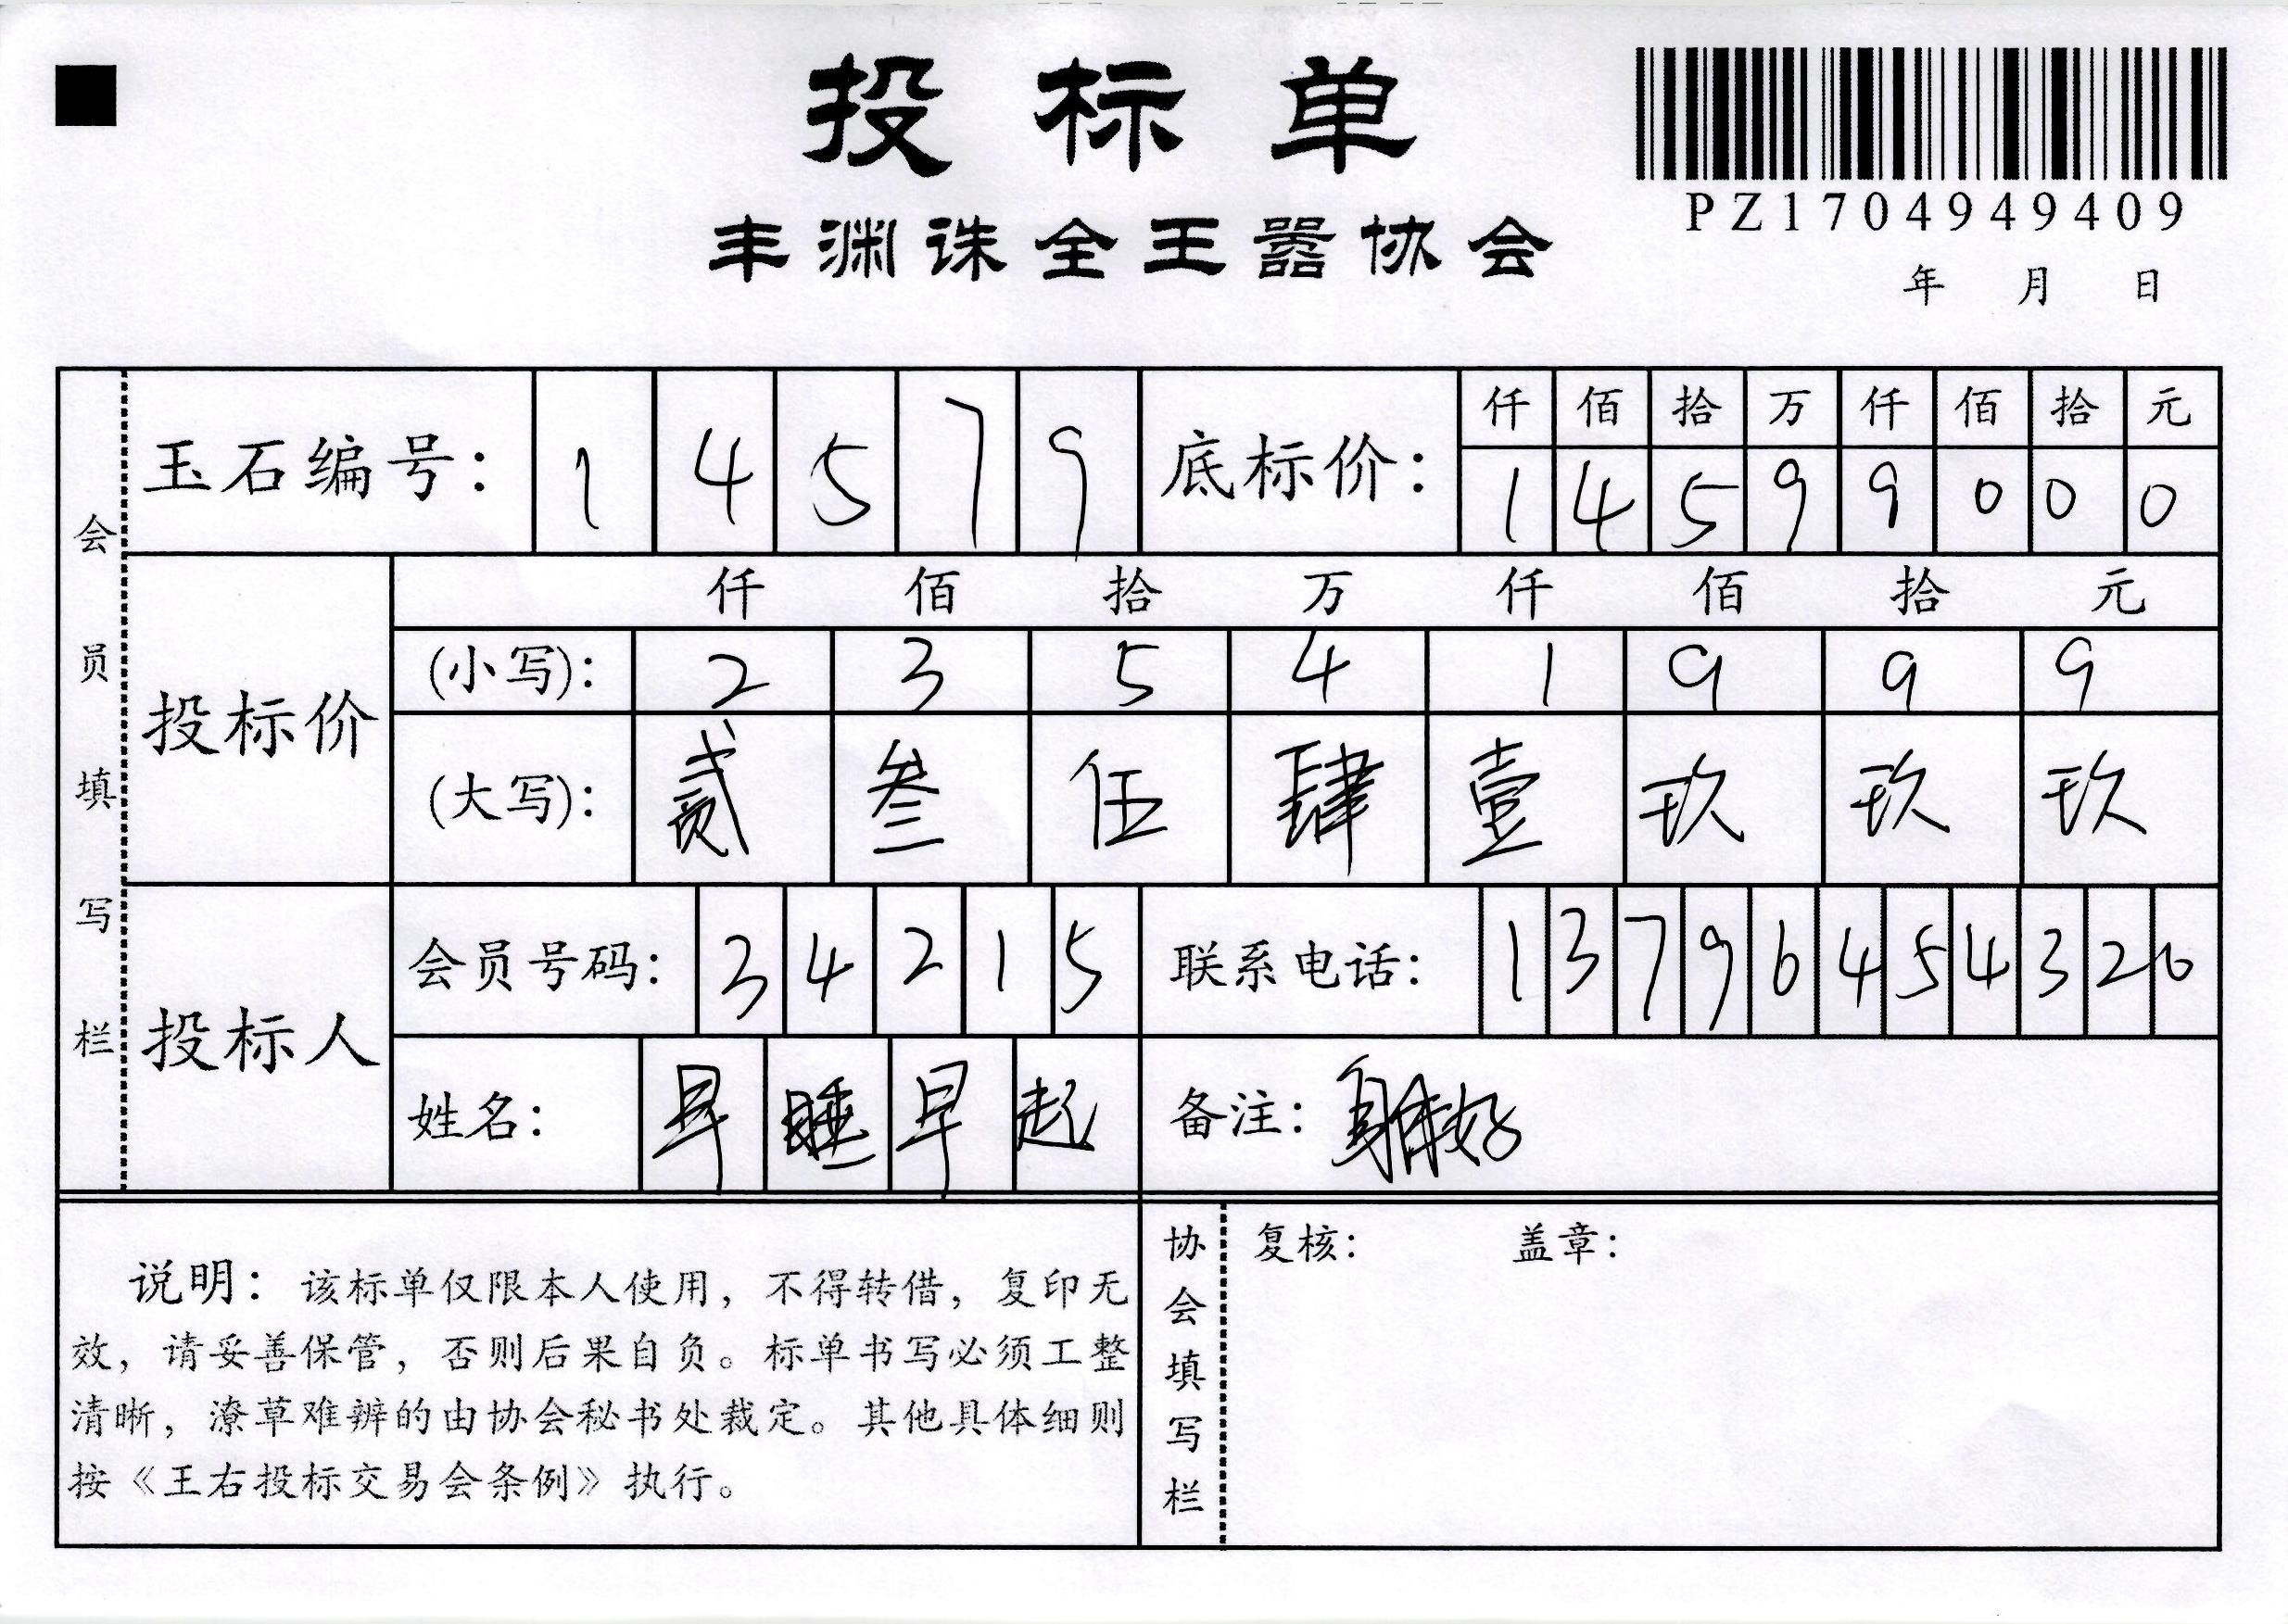 投标单
丰渊诛全王嚣协会
PZ1704949409
年 月 日
会员填写栏
玉石编号: 1 4 5 7 9
底标价: 仟 佰 拾 万 仟 佰 拾 元
1 4 5 9 9 0 0 0
投标价
仟 佰 拾 万 仟 佰 拾 元
(小写): 2 3 5 4 1 9 9 9
(大写): 贰 叁 伍 肆 壹 玖 玖 玖
投标人
会员号码: 3 4 2 1 5
联系电话: 1 3 7 9 6 4 5 4 3 2 6
姓名: 早 睡 早 起
备注: 身体好
说明: 该标单仅限本人使用，不得转借，复印无
效，请妥善保管，否则后果自负。标单书写必须工整
清晰，潦草难辨的由协会秘书处裁定。其他具体细则
按《王右投标交易会条例》执行。
协会填写栏
复核: 盖章: